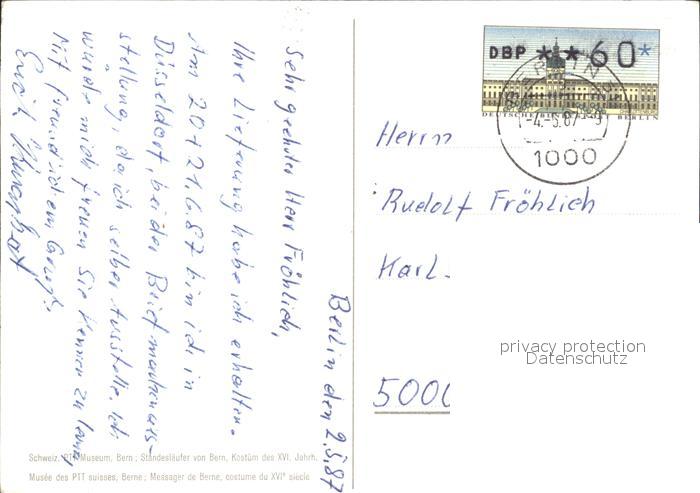 Berlin den 2.5.87
Sehr geehrter Herr Fröhlich,
Ihre Lieferung habe ich erhalten.
Am 20 + 21.6.87 bin ich in
Düsseldorf, bei der Briefmarkenaus-
stellung, da ich selber Ausstelle. Ich
würde mich freuen Sie kennen zu lernen,
Mit freundichem Gruß,
Erich
Schweiz. PTT-Museum, Bern; Standesläufer von Bern, Kostüm des XVI. Jahrh.
Musée des PTT suisses, Berne; Messager de Berne, costume du XVIe siècle
DBP **60*
DEUTSCHE BUNDESPOST BERLIN
-4.-5.87-
1000
Herrn
Rudolf Fröhlich
Karl-
privacy protection
Datenschutz
5000